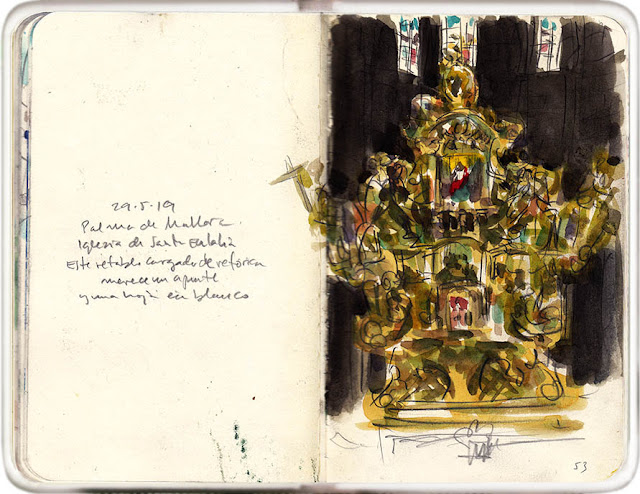 29.5.19
Palma de Mallorca.
Iglesia de Santa Eulalia
Este retablo cargado de retórica
merece un apunte
y una hoja en blanco
53